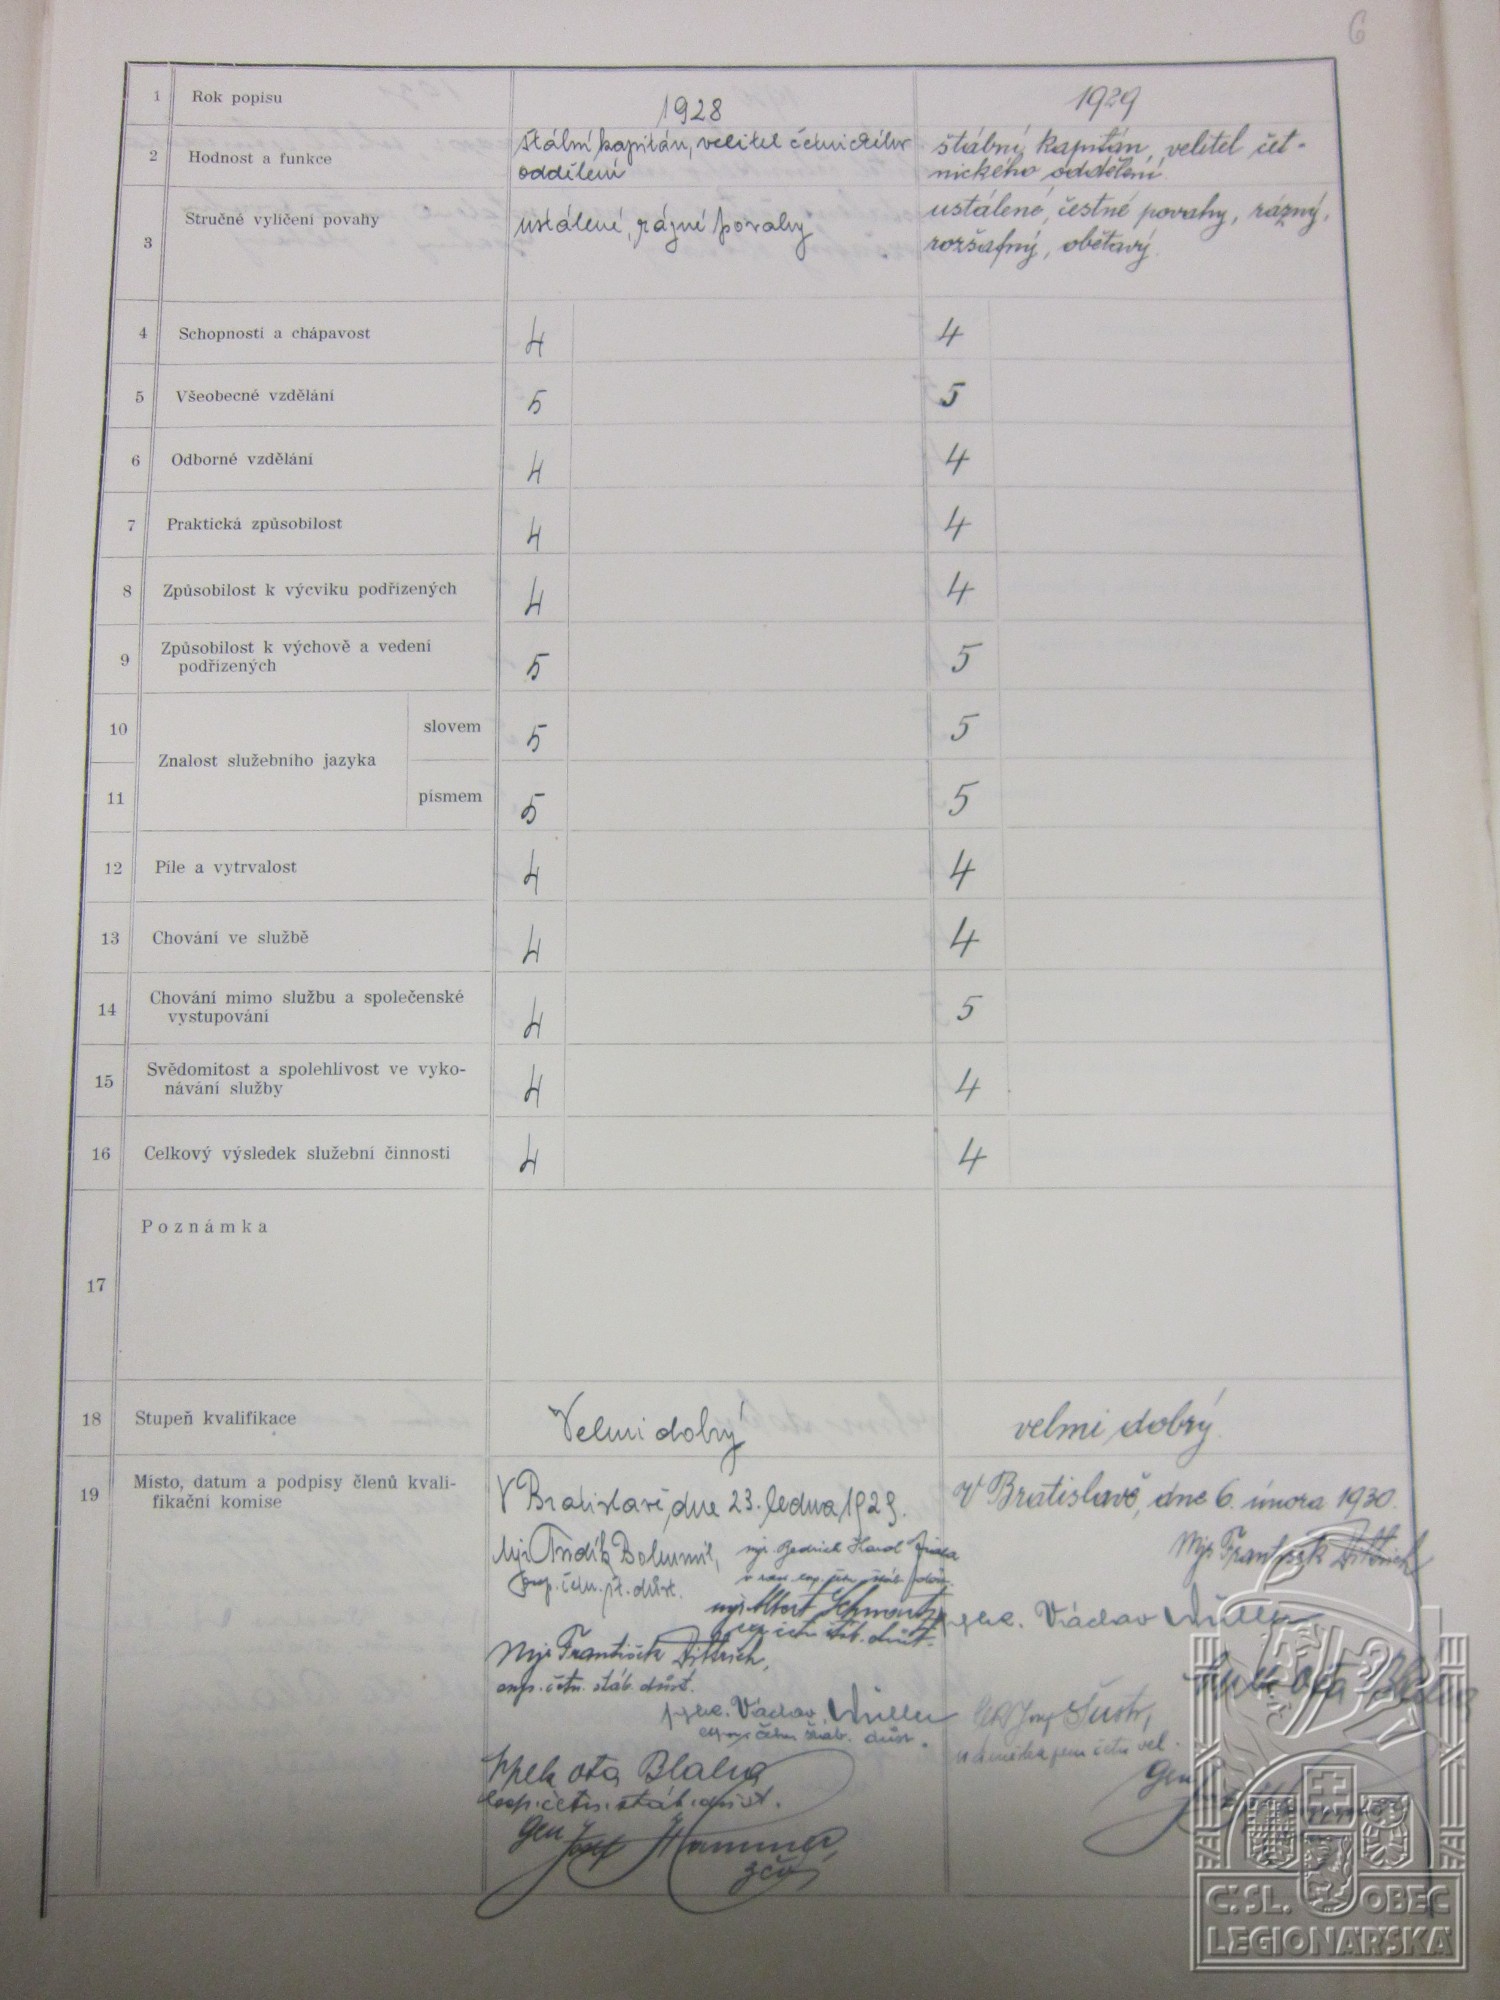 6
1 Rok popisu 1928 1929
2 Hodnost a funkce štábní kapitán, velitel četnického štábní kapitán, velitel čet-
oddělení nického oddělení
3 Stručné vylíčení povahy ustálené, rázné povahy ustálené, čestné povahy, rázný,
rozšafný, obětavý.
4 Schopnosti a chápavost 4 4
5 Všeobecné vzdělání 5 5
6 Odborné vzdělání 4 4
7 Praktická způsobilost 4 4
8 Způsobilost k výcviku podřízených 4 4
9 Způsobilost k výchově a vedení
podřízených 5 5
10 Znalost služebního jazyka slovem 5 5
11 písmem 5 5
12 Píle a vytrvalost 4 4
13 Chování ve službě 4 4
14 Chování mimo službu a společenské
vystupování 4 5
15 Svědomitost a spolehlivost ve vyko-
návání služby 4 4
16 Celkový výsledek služební činnosti 4 4
17 Poznámka
18 Stupeň kvalifikace Velmi dobrý velmi dobrý
19 Místo, datum a podpisy členů kvali-
fikační komise
V Bratislavě, dne 23. ledna 1929.
Bohumil,
mjr.
Mjr František Dittrich,
četn. štáb. důst.
Václav Müller
četn. štáb. důst.
Ota Blaha
četn. štáb. důst.
Gen Josef Hammer
V Bratislavě, dne 6. února 1930.
Mjr František Dittrich
Václav Müller
Ota Blaha
Josef Šustr,
Gen
Č.SL. OBEC
LEGIONÁŘSKÁ